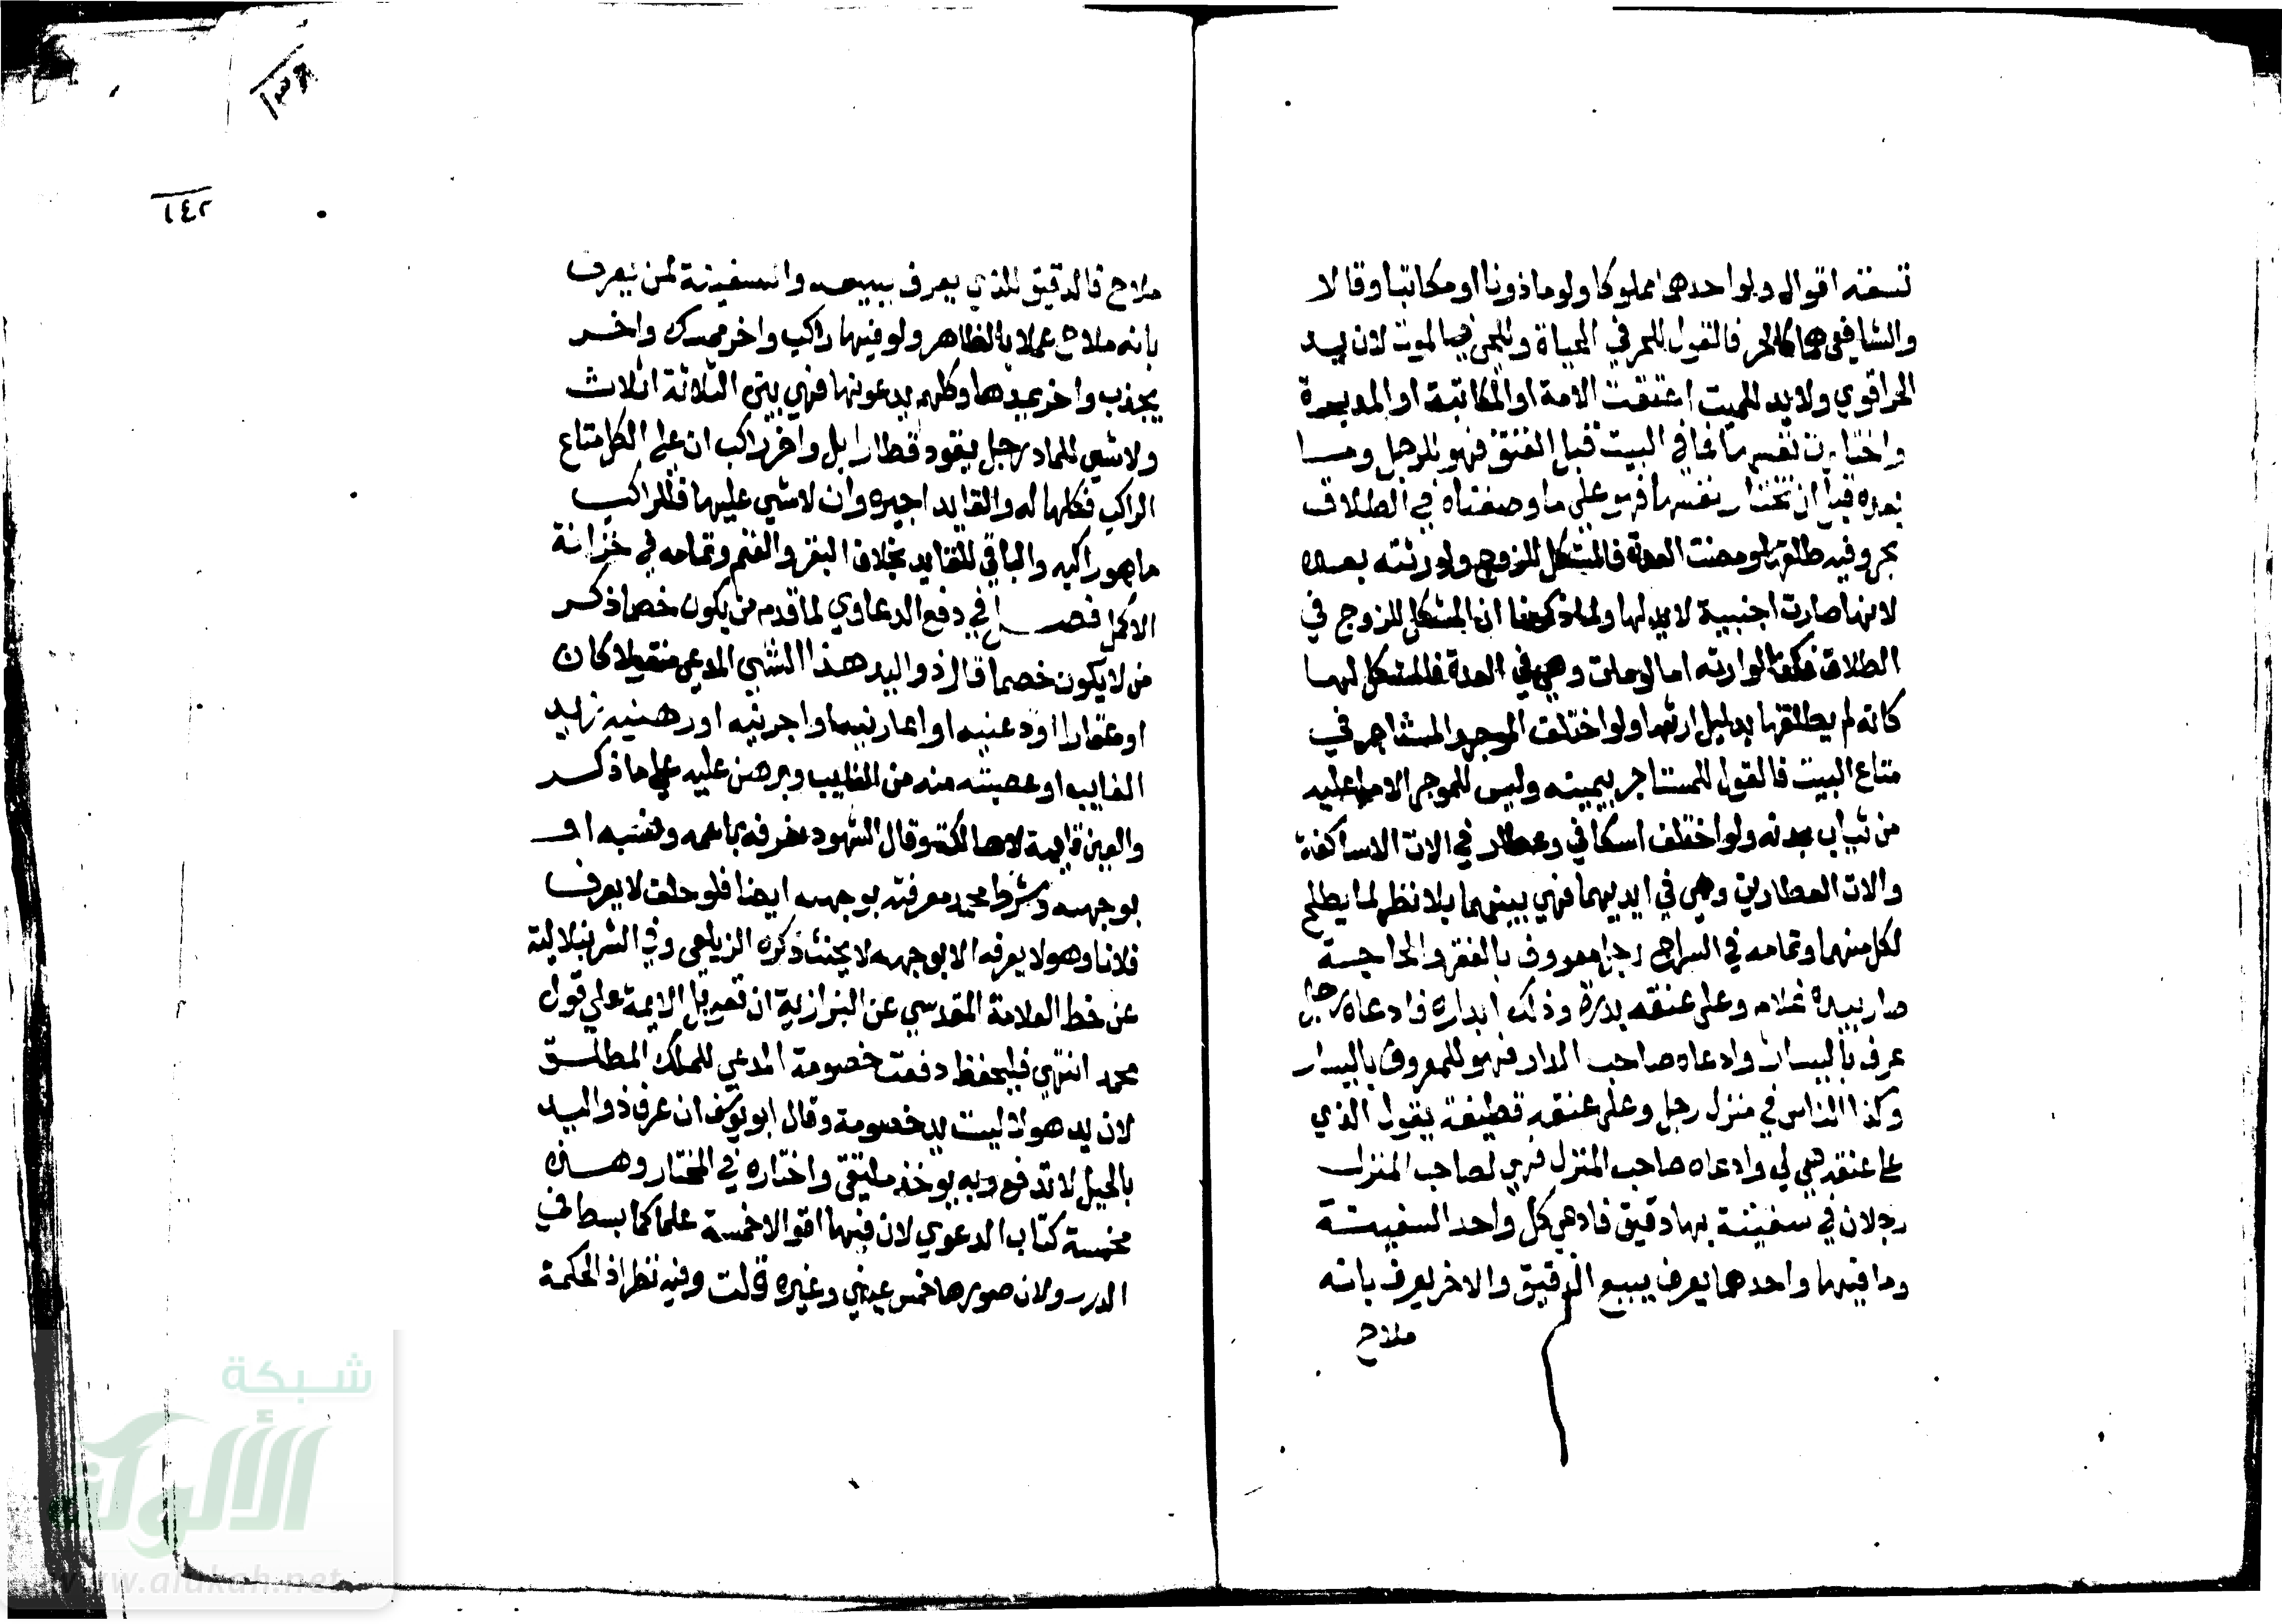 تسعة اقوال ولو احدهما مملوكا ولو ماذونا او مكاتبا وقالا
والشافعي هما كالحر فالقول للحر في الحياة وللحي في الموت لان يد
الحر اقوي ولا يد للميت اعتقت الامة او المكاتبة او المدبرة
واختارت نفسها فما في البيت قبل العتق فهو للرجل وما
بعده قبل ان تختار نفسها فهو علي ما وصفناه في الطلاق
بحر وفيه طلقها ومضت العدة فالمشكل للزوج ولورثته بعده
لانها صارت اجنبية لا يد لها ولما ذكرنا ان المشكل للزوج في
الطلاق فكذا لوارثه اما لو مات وهي في العدة فالمشكل لها
كانه لم يطلقها بدليل ارثها ولو اختلف الموجر والمستاجر في
متاع البيت فالقول للمستاجر بيمينه وليس للموجر الا ما عليه
من ثياب بدنه ولو اختلف اسكافي وعطار في الات الاساكفة
والات العطارين وهي في ايديهما فهي بينهما بلا نظر لما يصلح
لكل منهما وتمامه في السراج رجل معروف بالفقر والحاجة
صار بيده غلام وعلي عنقه بدرة وذلك بداره فادعاه رجل
عرف باليسار وادعاه صاحب الدار فهو للمعروف باليسار
وكذا كناس في منزل رجل وعلي عنقه قطيفة يقول الذي
علي عنقه هي لي وادعاه صاحب المنزل فهي لصاحب المنزل
رجلان في سفينة بها دقيق فادعي كل واحد السفينة
وما فيها واحدهما يعرف ببيع الدقيق والاخر يعرف بانه
ملاح
١٣٨
١٤٢
ملاح فالدقيق للذي يعرف ببيعه والسفينة لمن يعرف
بانه ملاح عملا بالظاهر ولو فيها راكب واخر ممسك واخر
يجذب واخر يمدها وكلهم يدعونها فهي بين الثلاثة اثلاث
ولا شي للماد رجل يقود قطار ابل واخر راكب ان علي الكل متاع
الراكب فكلها له والقايد اجيره وان لا شي عليها فللراكب
ما هو راكبه والباقي للقايد بخلاف البقر والغنم وتمامه في خزانة
الاكمل فصل في دفع الدعاوي لما قدم من يكون خصما ذكر
من لا يكون خصما قال ذو اليد هذا الشي المدعي منقولا كان
او عقارا اودعنيه او اعارنيه او اجرنيه او رهنيه زيد
الغايب او غصبته منه من الغايب وبرهن عليه علي ما ذكر
والعين قايمة لا هالكة وقال الشهود نعرفه باسمه ونسبه او
بوجهه وشرط محمد معرفته بوجهه ايضا فلو حلف لا يعرف
فلانا وهو لا يعرفه الا بوجهه لا يحنث ذكره الزيلعي وفي الشرنبلالية
عن خط العلامة المقدسي عن البزازية ان تعويل الايمة علي قول
محمد انتهي فليحفظ دفعت خصومة المدعي للملك المطلق
لان يد هولا ليست يد خصومة وقال ابو يوسف ان عرف ذو اليد
بالحيل لا تدفع وبه يوخذ ملتقي واختاره في المختار وهذه
مخمسة كتاب الدعوي لان فيها اقوالا خمسة علما كما بسط في
الدرر ولان صورها خمس عيني وغيره قلت وفيه نظر اذ الحكمة
شبكة
الألوكة
www.alukah.net